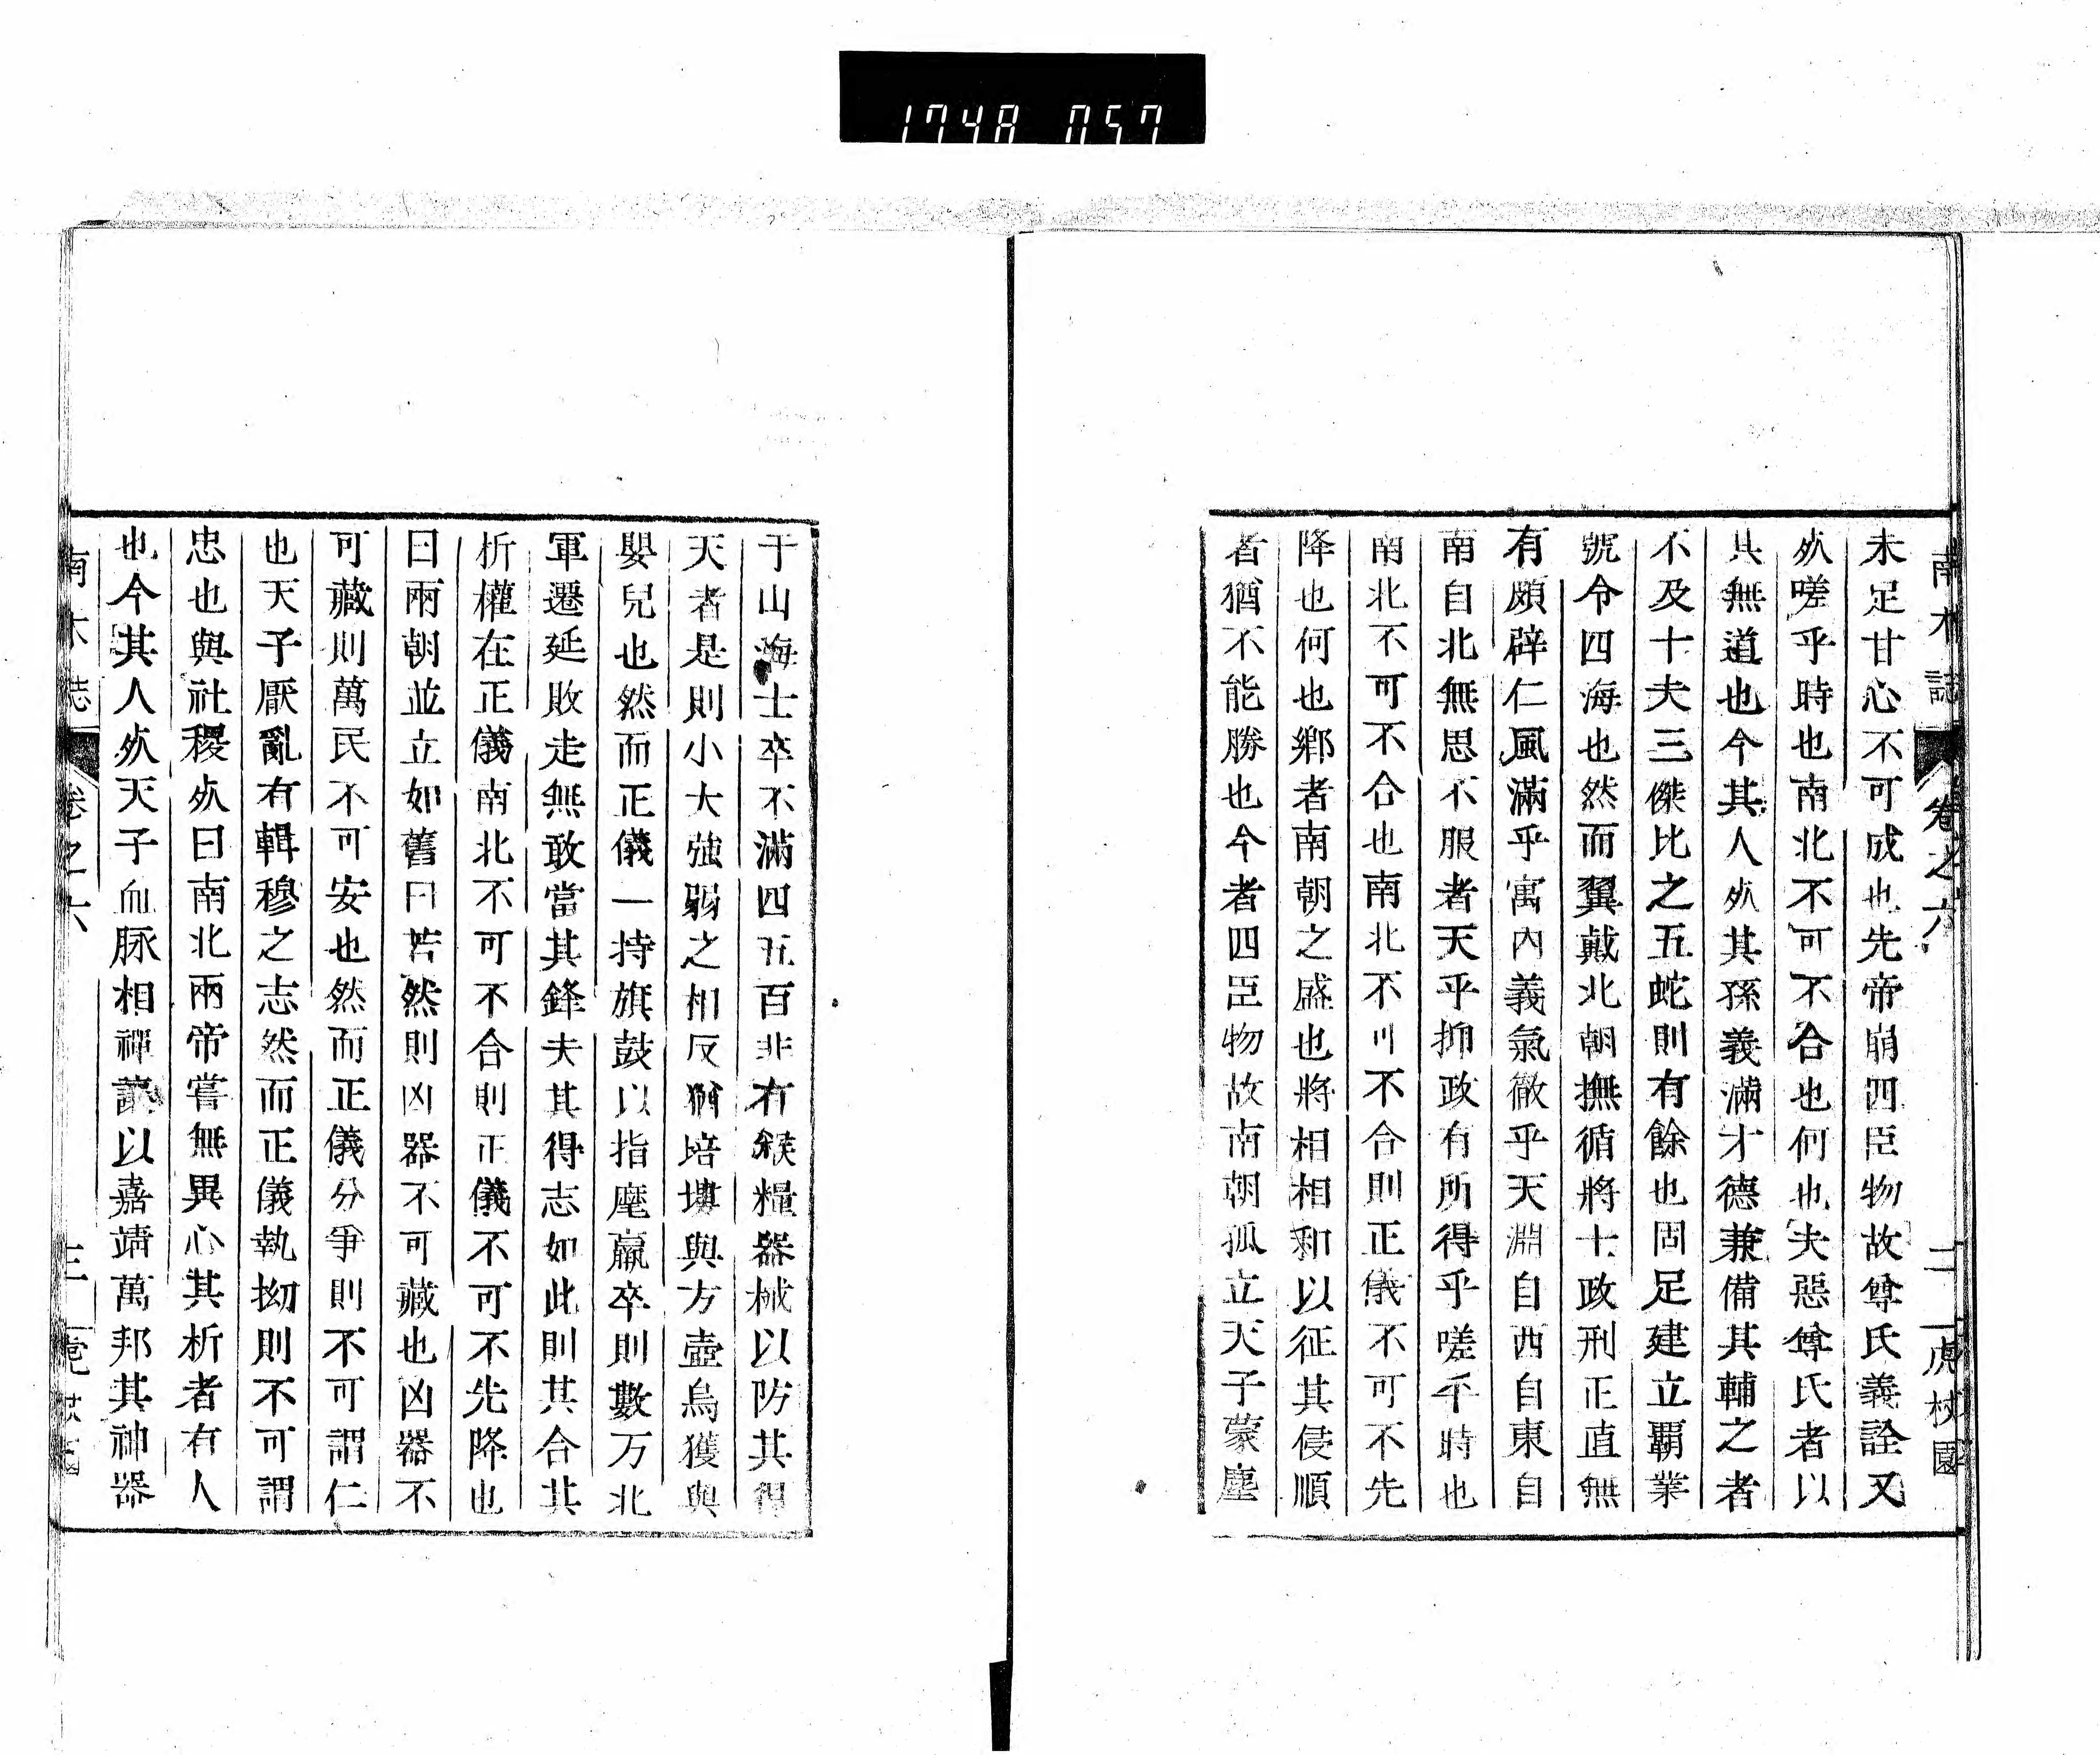 1748 057
南木誌 卷之六 二 虎校園
未足甘心不可成也先帝崩四臣物故尊氏義詮又
㱙嗟乎時也南北不可不合也何也夫惡尊氏者以
其無道也今其人㱙其孫義滿才德兼備其輔之者
不及十夫三傑比之五蛇則有餘也固足建立覇業
號令四海也然而翼戴北朝撫循將士政刑正直無
有頗辟仁風滿乎寓內義氣徹乎天淵自西自東自
南自北無思不服者天乎抑政有所得乎嗟乎時也
南北不可不合也南北不可不合則正儀不可不先
降也何也鄉者南朝之盛也將相相和以征其侵順
者猶不能勝也今者四臣物故南朝孤立天子蒙塵
于山海士卒不滿四五百非有餱糧器械以防其得
天者是則小大強弱之相反猶培塿與方壺烏獲與
嬰兒也然而正儀一持旗鼓以指麾羸卒則數万北
軍遷延敗走無敢當其鋒夫其得志如此則其合其
析權在正儀南北不可不合則正儀不可不先降也
曰兩朝並立如舊曰若然則凶器不可藏也凶器不
可藏則萬民不可安也然而正儀分爭則不可謂仁
也天子厭亂有輯穆之志然而正儀執拗則不可謂
忠也與社稷㱙曰南北兩帝嘗無異心其析者有人
也今其人㱙天子血脉相禪讓以嘉靖萬邦其神器
南木誌 卷之六 三